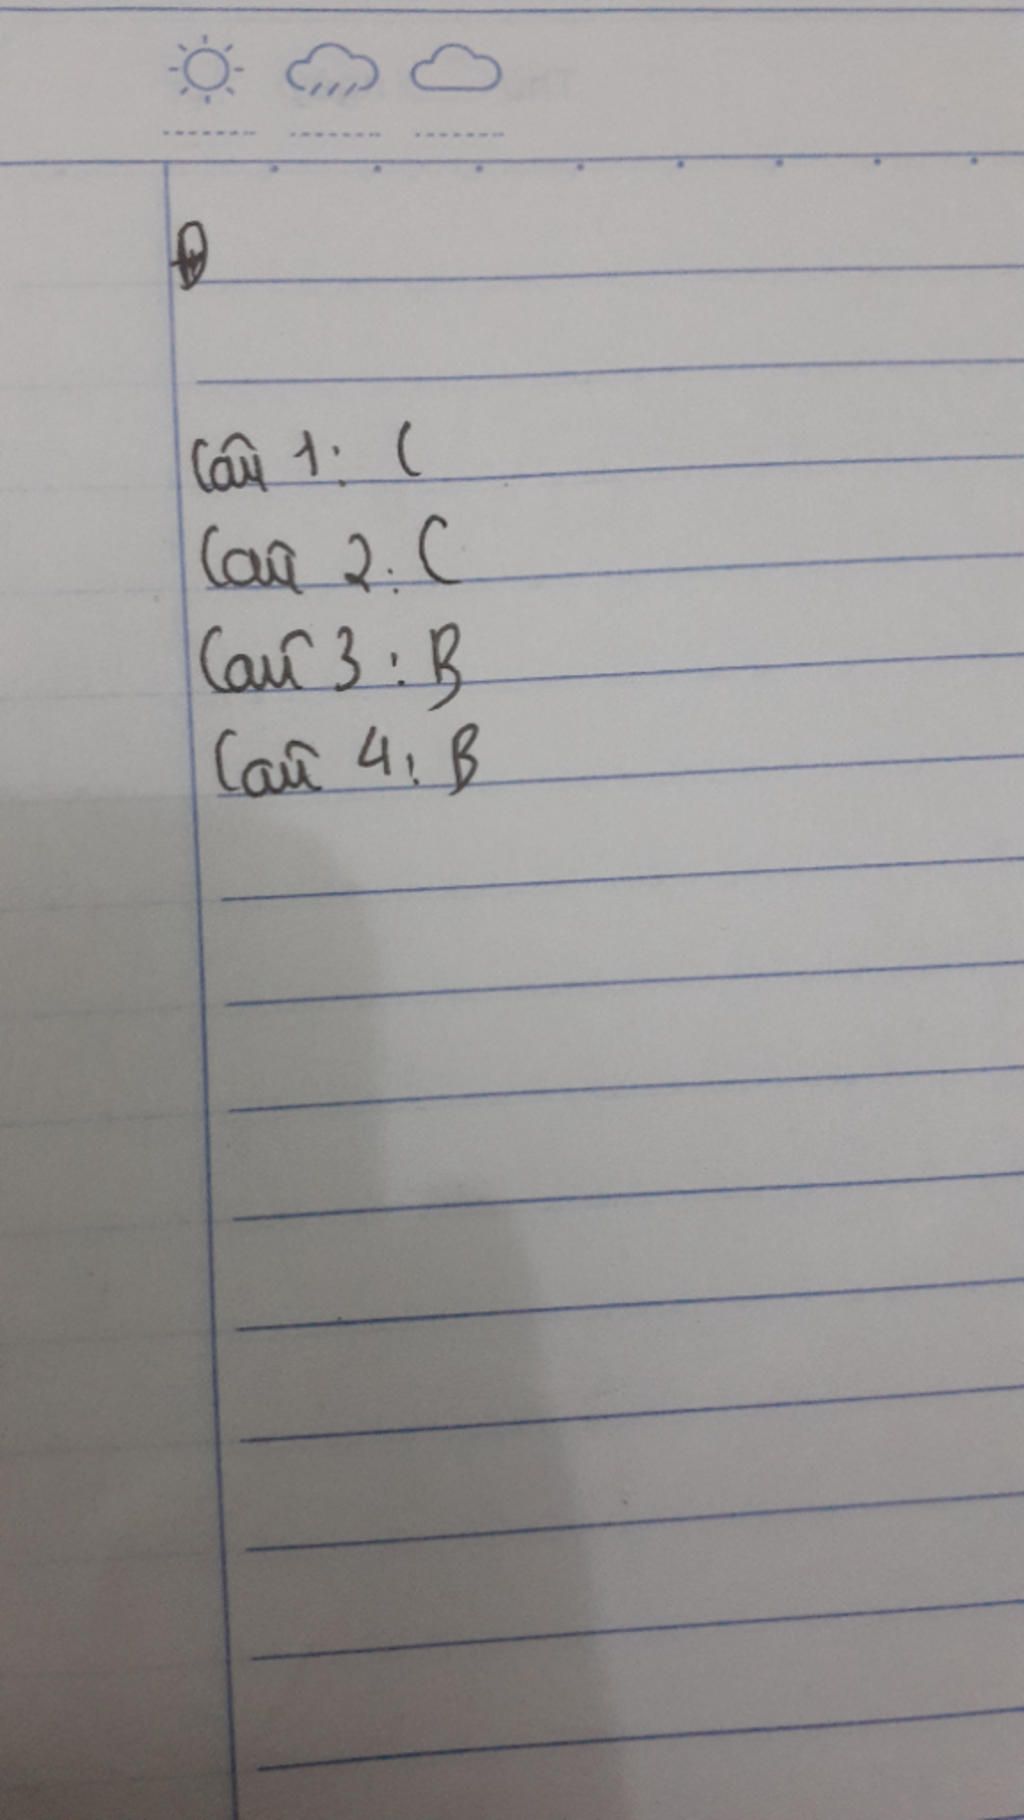 Câu 1: C
Câu 2: C
Câu 3: B
Câu 4: B